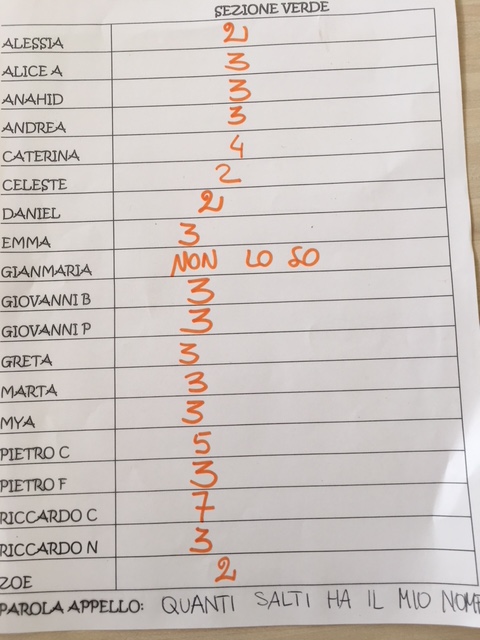 SEZIONE VERDE
ALESSIA 2
ALICE A 3
ANAHID 3
ANDREA 3
CATERINA 4
CELESTE 2
DANIEL 2
EMMA 3
GIANMARIA NON LO SO
GIOVANNI B 3
GIOVANNI P 3
GRETA 3
MARTA 3
MYA 3
PIETRO C 5
PIETRO F 3
RICCARDO C 7
RICCARDO N 3
ZOE 2
PAROLA APPELLO: QUANTI SALTI HA IL MIO NOME